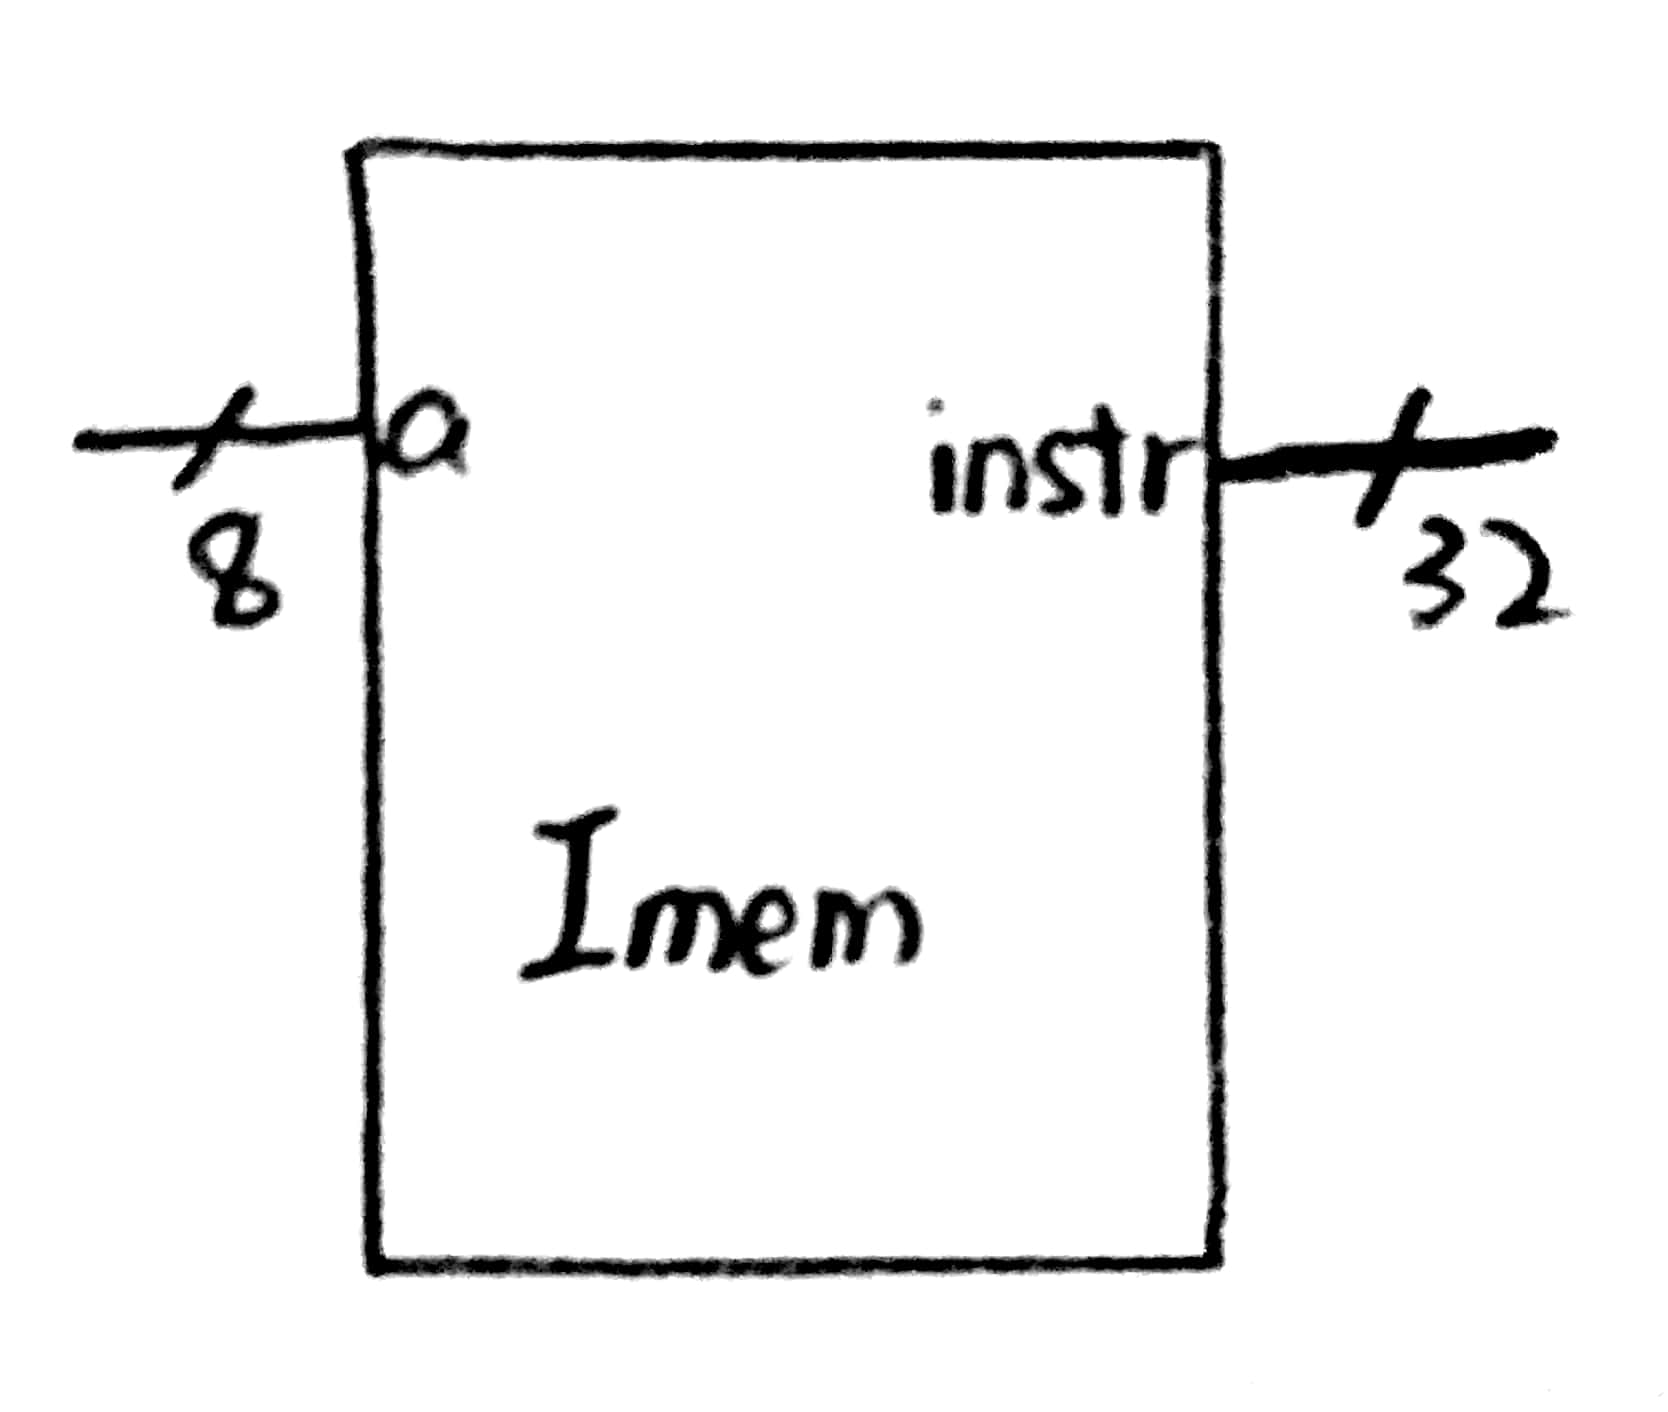 a
instr
8
32
Imem